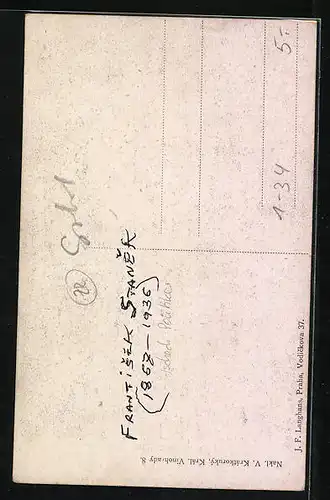 FRANTIŠEK STANĚK
(1867–1936)
J. F. Langhans, Praha, Vodičkova 37.
Nakl. V. Krátkoruký, Král. Vinohrady 8.
1-34
5-